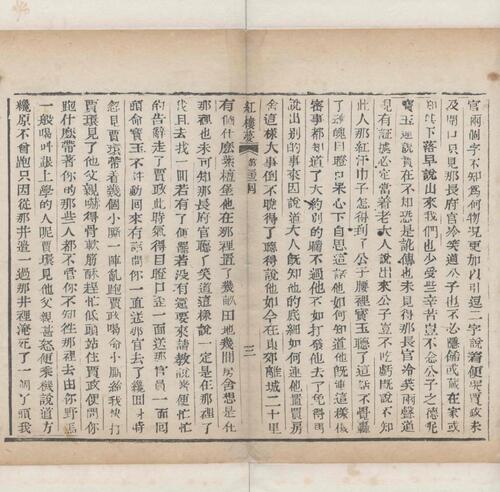 官兩個字不知爲何物況更加以引逗二字說着便哭賈政未
及開口只見那長府官冷笑道公子也不必隱飾或藏在家或
知其下落早說出來我們也少受些辛苦豈不念公子之德呢
寶玉連說實在不知恐是訛傳也未見得那長官冷笑兩聲道
現有証據必定當着老大人說出來公子豈不吃虧既說不知
此人那紅汗巾子怎得到了公子腰裡寶玉聽了這話不覺轟
了魂魄目瞪口呆心下自思這話他如何知道他既連這樣機
密事都知道了大約別的瞞不過他不如打發他去了免得再
說出別的事來因說道大人既知他的底細如何連他置買房
舍這樣大事倒不曉得了聽得說他如今在東郊離城二十里
紅樓夢 第三十三回 三
有個什麼紫檀堡他在那裡置了幾畝田地幾間房舍想是在
那裡也未可知那長府官聽了笑道這樣說一定是在那裡了
我且去找一回若有了便罷若沒有還要來請教說着便忙忙
的告辭走了賈政此時氣得目瞪口歪一面送那官員一面回
頭命寶玉不許動回來有話問你一直送那官去了纔回身時
忽見賈環帶着幾個小厮一陣亂跑賈政喝命小厮給我快打
賈環見了他父親嚇得骨軟筋酥趕忙低頭站住賈政便問你
跑什麼帶着你的那些人都不管你不知往那裡去由你野馬
一般喝叫跟上學的人呢賈環見他父親甚怒便乘機說道方
纔原不曾跑只因從那井邊一過那井裡淹死了一個丫頭我